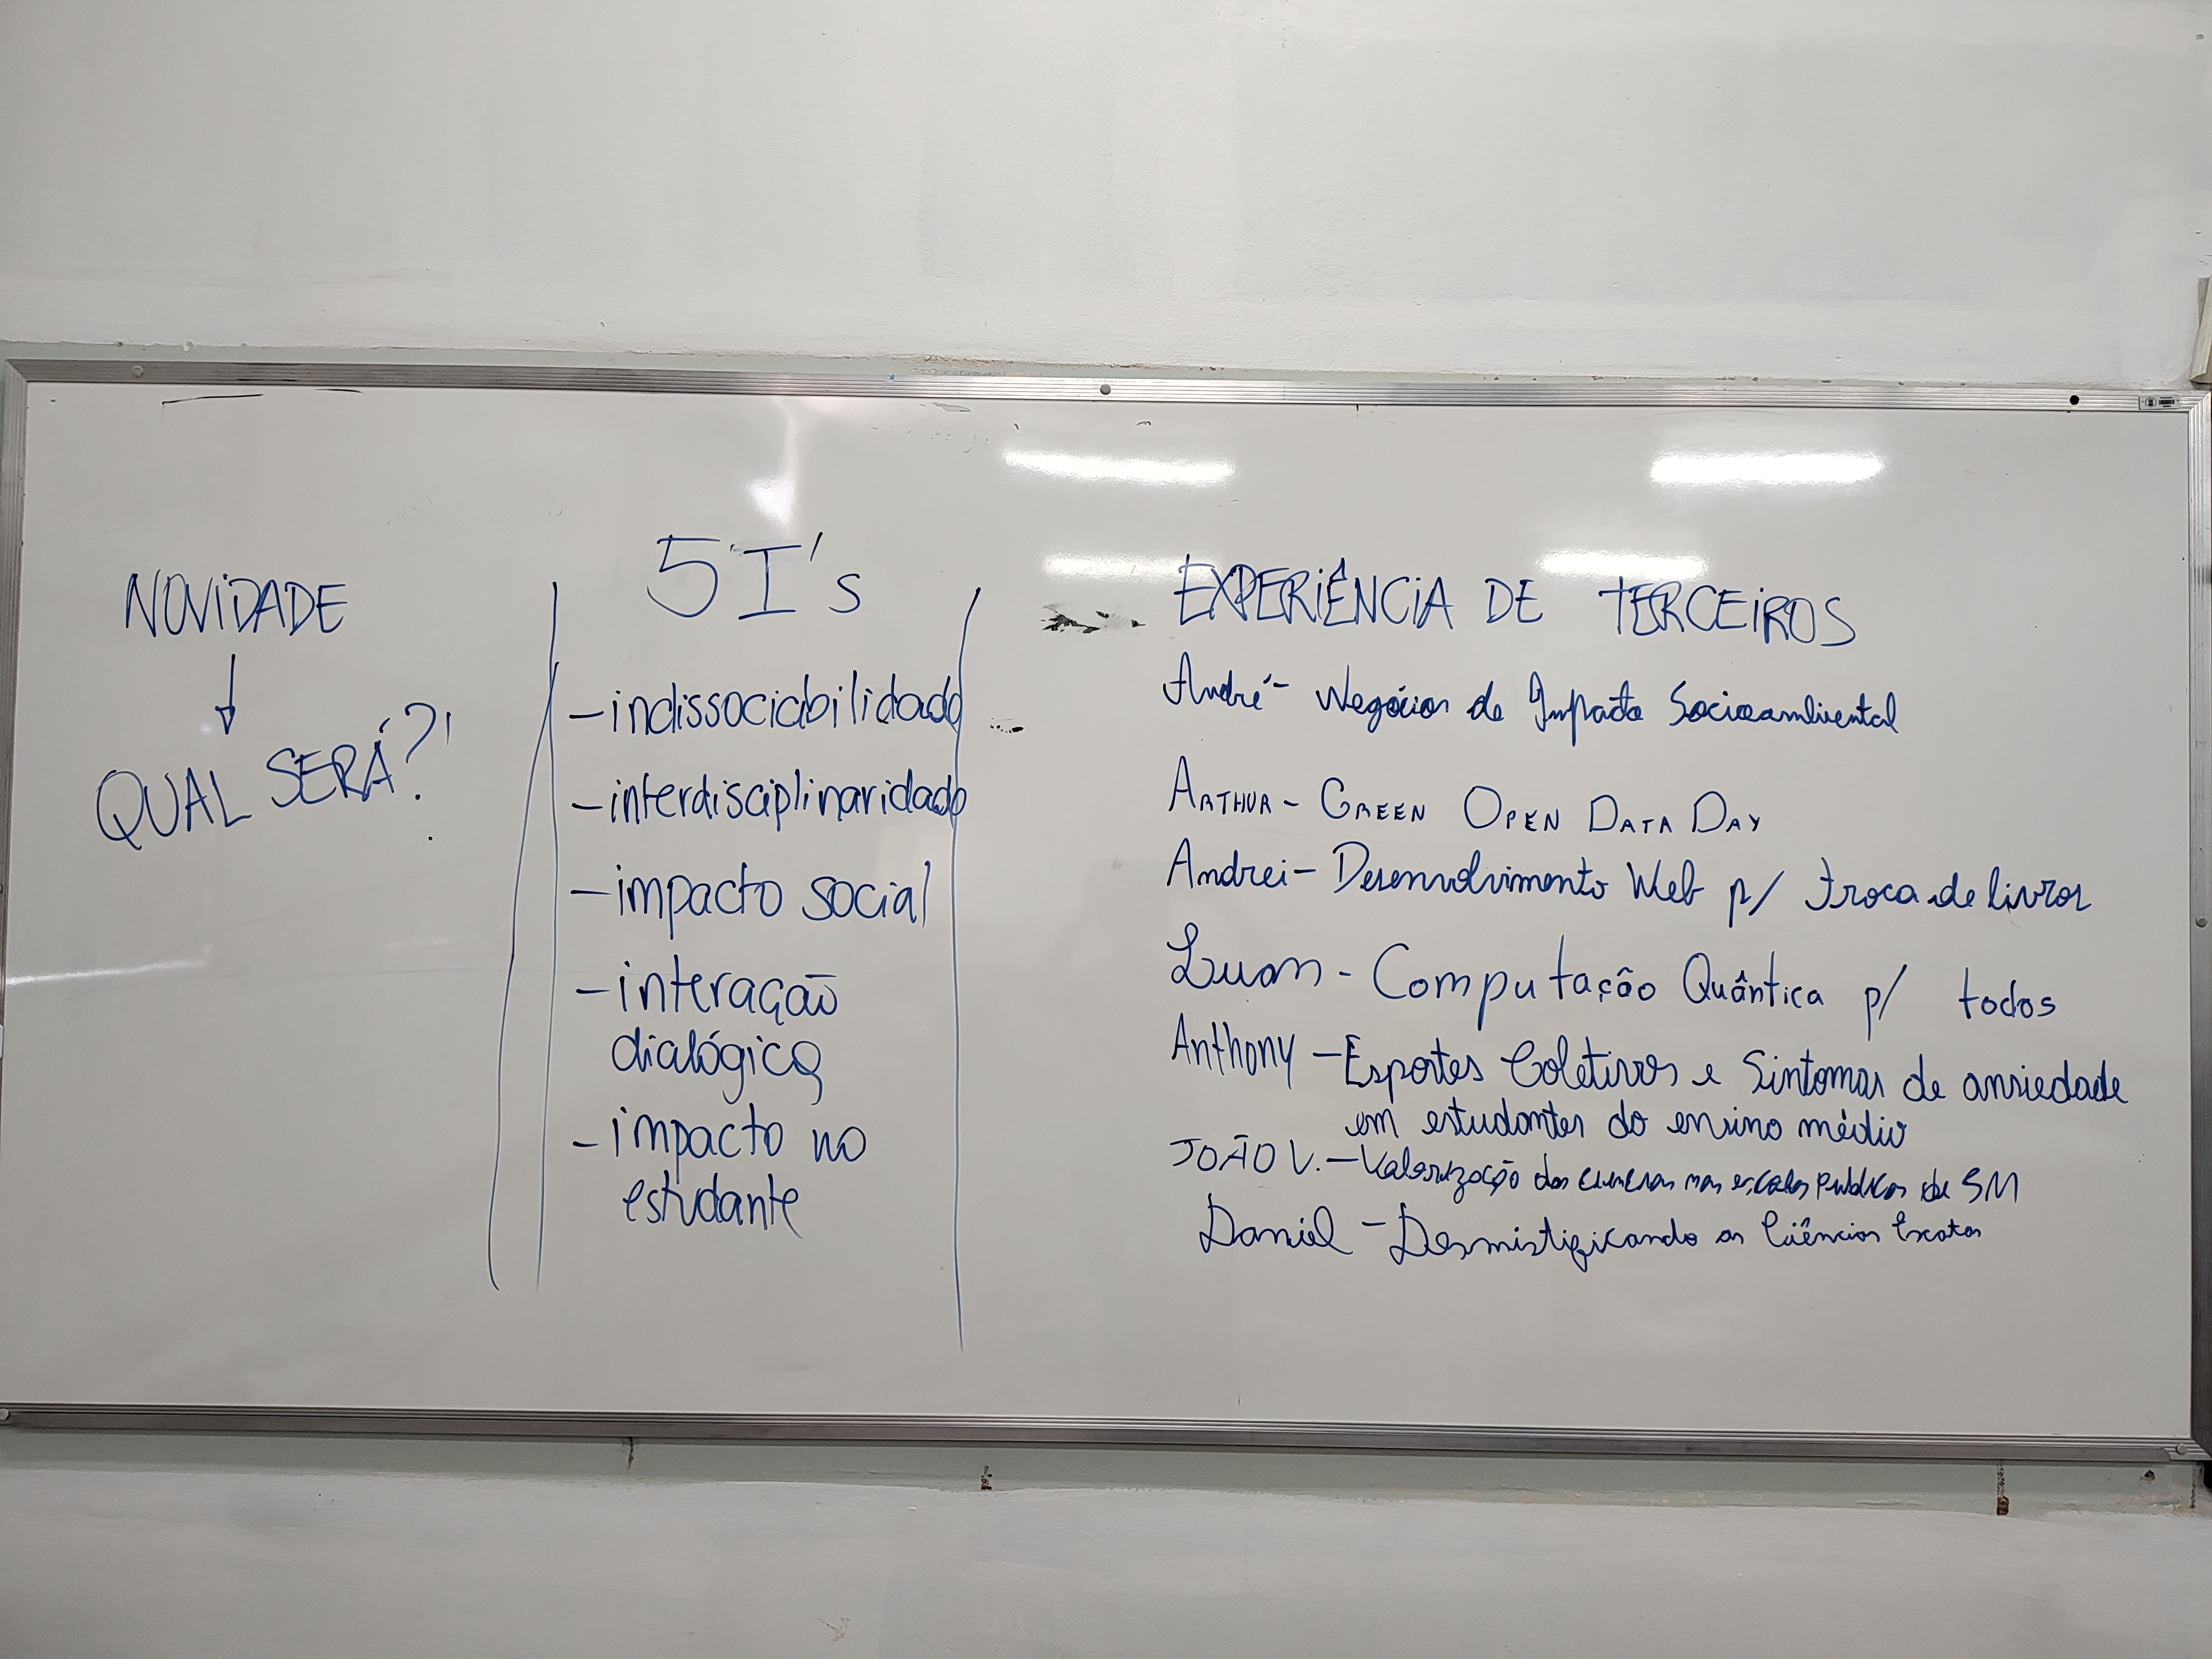 NOVIDADE
↓
QUAL SERÁ?!
5 I's
- indissociabilidade
- interdisciplinaridade
- impacto social
- interação
dialógica
- impacto no
estudante
EXPERIÊNCIA DE TERCEIROS
André - Negócios de Impacto Socioambiental
ARTHUR - GREEN OPEN DATA DAY
Andrei - Desenvolvimento Web p/ troca de livros
Luan - Computação Quântica p/ todos
Anthony - Esportes Coletivos e Sintomas de ansiedade
em estudantes do ensino médio
JOÃO V. - Valorização das nas escolas públicas de SM
Daniel - Desmistificando as Ciências Exatas